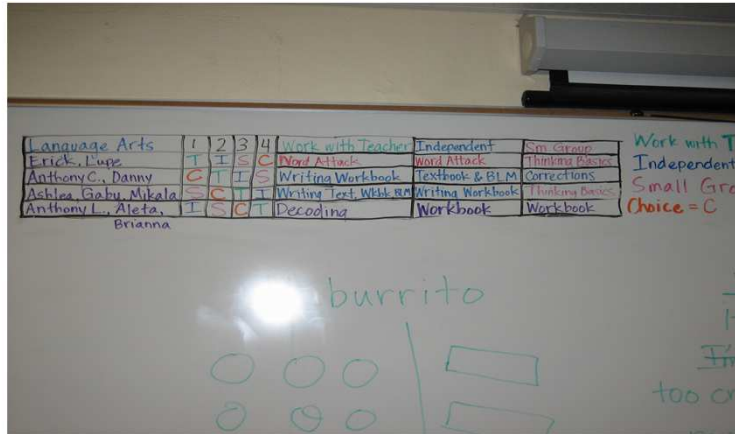 Language Arts 1 2 3 4 Work with Teacher Independent Sm. Group
Erick, Lupe T I S C Word Attack Word Attack Thinking Basics
Anthony C., Danny C T I S Writing Workbook Textbook & BLM Corrections
Ashlea, Gaby, Mikala S C T I Writing Text, Wkbk BLM Writing Workbook Thinking Basics
Anthony L., Aleta, I S C T Decoding Workbook Workbook
Brianna
Work with T
Independent
Small Gr
Choice = C
burrito
too